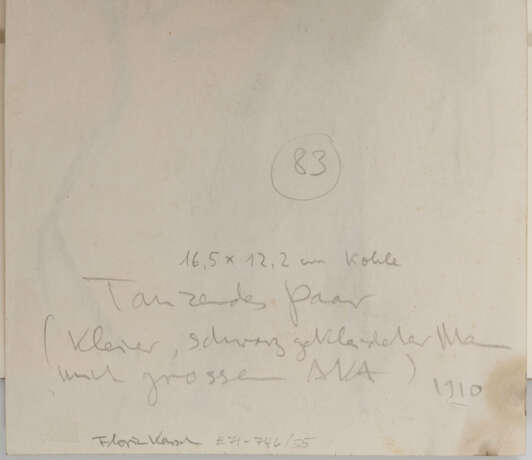 83
16,5 x 12,2 cm Kohle
Tanzendes Paar
(kleiner, schwarz gekleideter Ma
mit grossem )
1910
Florian Karsch E71-746/55